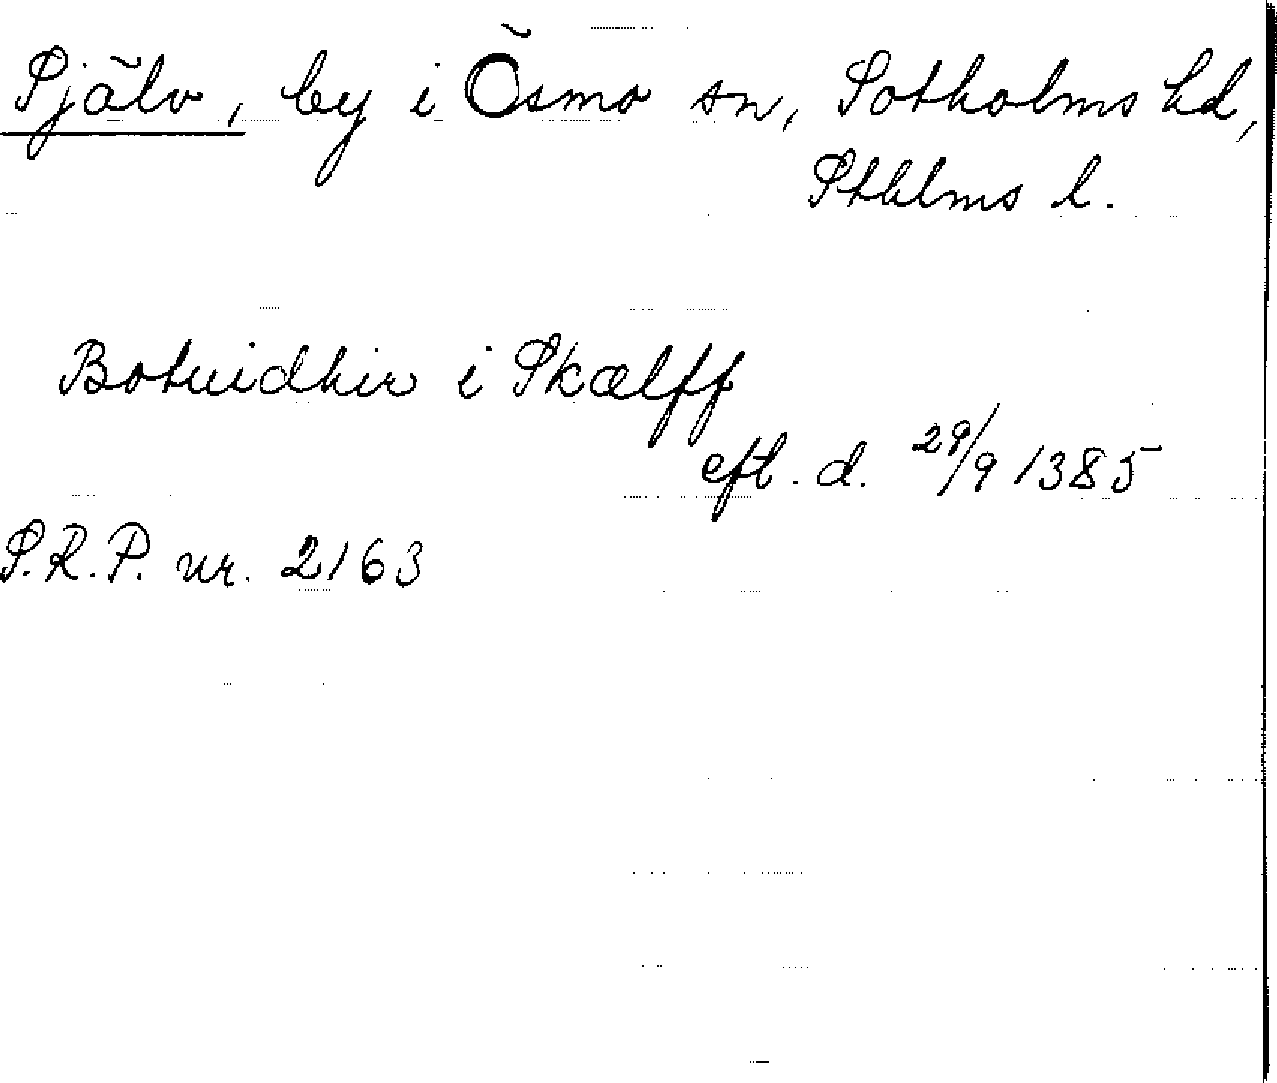 Själv, by i Ösmo sn, Sotholms hd,
Sthlms l.
Botuidhir i Skælff
eft. d. 29/9 1385
S.R.P. nr. 2163